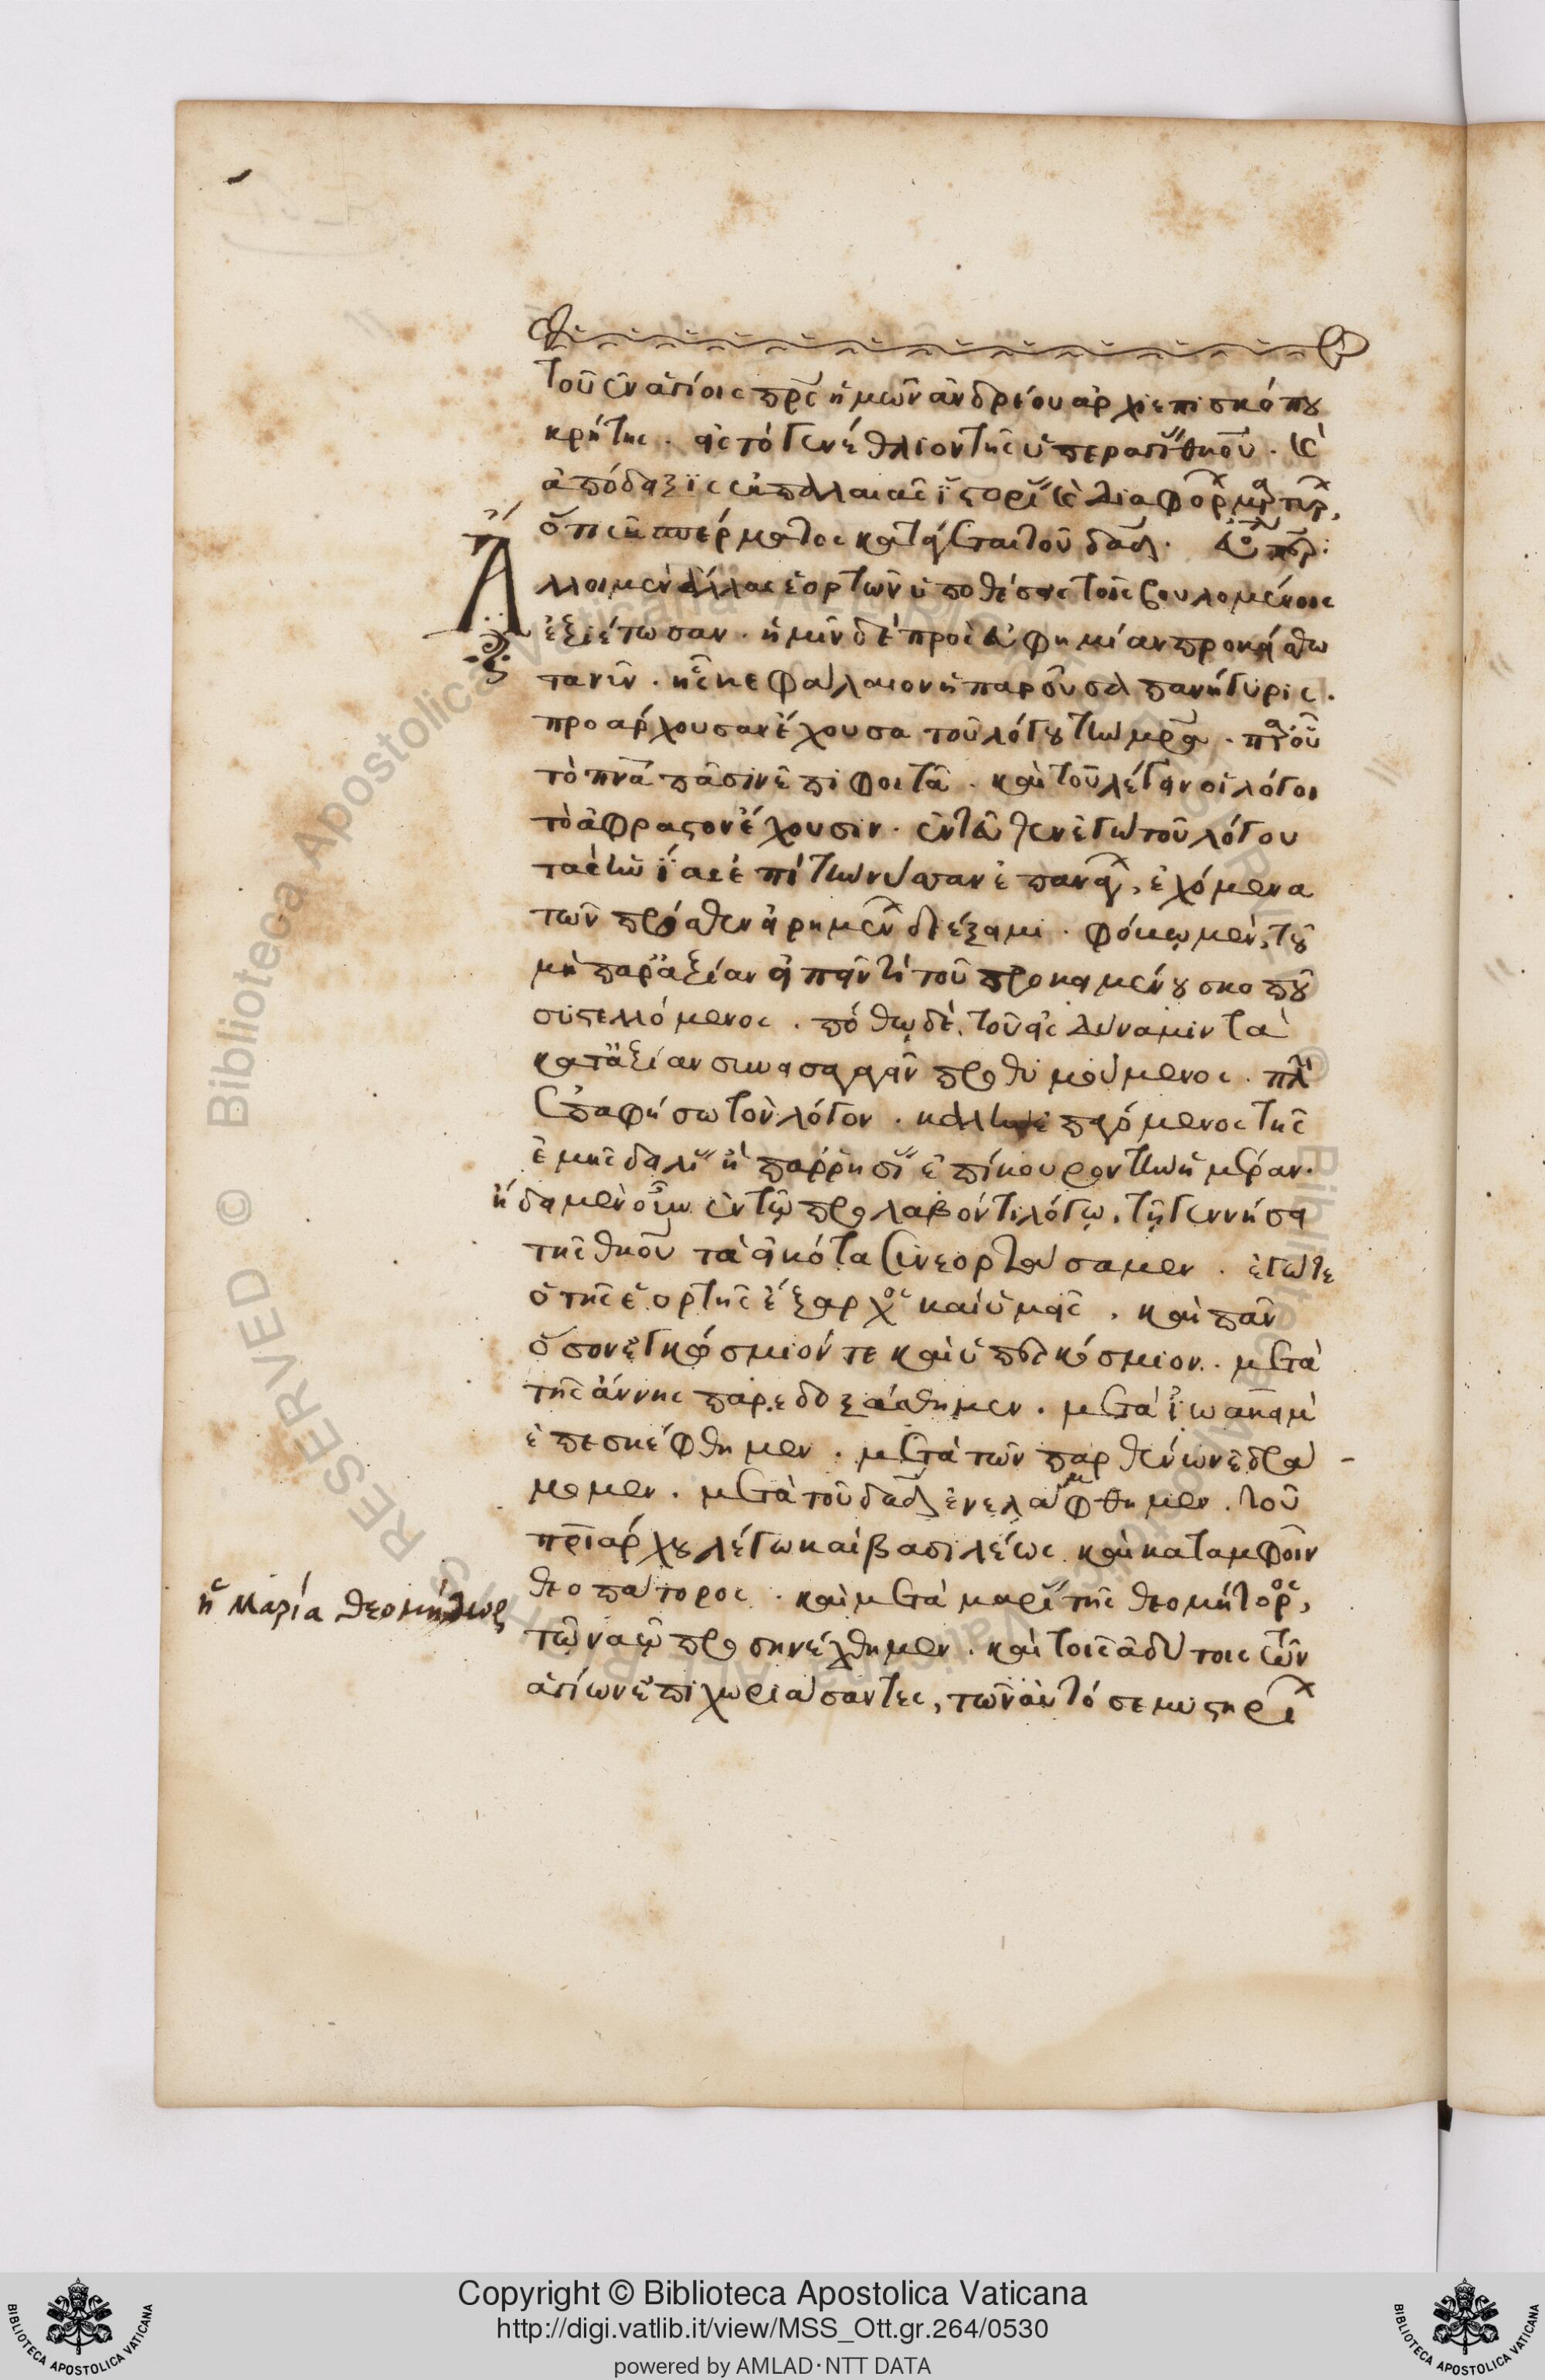 τοῦ ἐν ἁγίοις πρς ἡμῶν ἀνδρέου ἀρχιεπισκόπου
κρήτης. εἰς τὸ γενέθλιον τῆς ὑπεραγίας θκου. καὶ
ἀπόδειξις ἐκ παλαιᾶς ἱστορίας καὶ διαφόρων μαρτυριῶν,
ὅτι ἐκ σπέρματος κατάγεται τοῦ δαδ.
Ἄλλοι μὲν ἄλλας ἑορτῶν ὑποθέσεις τοῖς βουλομένοις
ἐξιέτωσαν. ἡμῖν δὲ πρὸς εὐφημίαν προκείσθω
τανῦν. ἧς κεφάλαιον ἡ παροῦσα πανήγυρις.
προάρχουσαν ἔχουσα τοῦ λόγου τὴν μρα.
τὸ πνα πᾶσιν ἐπιφοιτᾶ. καὶ τοῦ λέγειν οἱ λόγοι
τὸ ἄφραστον ἔχουσιν. ἐντεῦθεν ἐγὼ τοῦ λόγου
ἐχόμενα
τῶν πρόσθεν εἰρημένων διέξειμι. φόβῳ μὲν, τοῦ
μὴ παρ' ἀξίαν εἰπεῖν τί τοῦ προκειμένου σκοποῦ
συστελλόμενος. πόθῳ δὲ, τοῦ εἰς δύναμιν τὰ
κατ' ἀξίαν συνεισαγαγεῖν προθυμούμενος. πλὴν
ἐπαφήσω τὸν λόγον. τῆς
ἐμῆς δειλίας ἡ παρρησία ἐπίκουρον τὴν ἡμέραν.
ἤδη μὲν οὖν ἐν τῷ προλαβόντι λόγῳ, τῇ γεννήσει
τῆς θκου τὰ εἰκότα συνεορτάσαμεν. ἐγώ τε
ὁ τῆς ἑορτῆς ἔξαρχος καὶ ὑμεῖς, καὶ πᾶν
ὅσον ἐγκόσμιόν τε καὶ ὑπερκόσμιον. μετὰ
τῆς ἄννης παρεδοξάσθημεν. μετὰ ἰωακεὶμ
ἐπεσκέφθημεν. μετὰ τῶν παρθένων ἐδρά-
μομεν. μετὰ τοῦ δαδ ἐνελάμφθημεν. τοῦ
πριάρχου λέγω καὶ βασιλέως καὶ κατ' ἀμφοῖν
θεοπάτορος. καὶ μετὰ μαρίας τῆς θεομήτορος,
τῷ ναῷ προσηνέχθημεν. καὶ τοῖς ἀδύτοις τῶν
ἁγίων ἐπιχωριάσαντες, τῶν αὐτόσε μυστηρίων
ἡ Μαρία θεομήτωρ
Copyright © Biblioteca Apostolica Vaticana
http://digi.vatlib.it/view/MSS_Ott.gr.264/0530
powered by AMLAD·NTT DATA
BIBLIOTECA APOSTOLICA VATICANA
BIBLIOTECA APOSTOLICA VATICANA